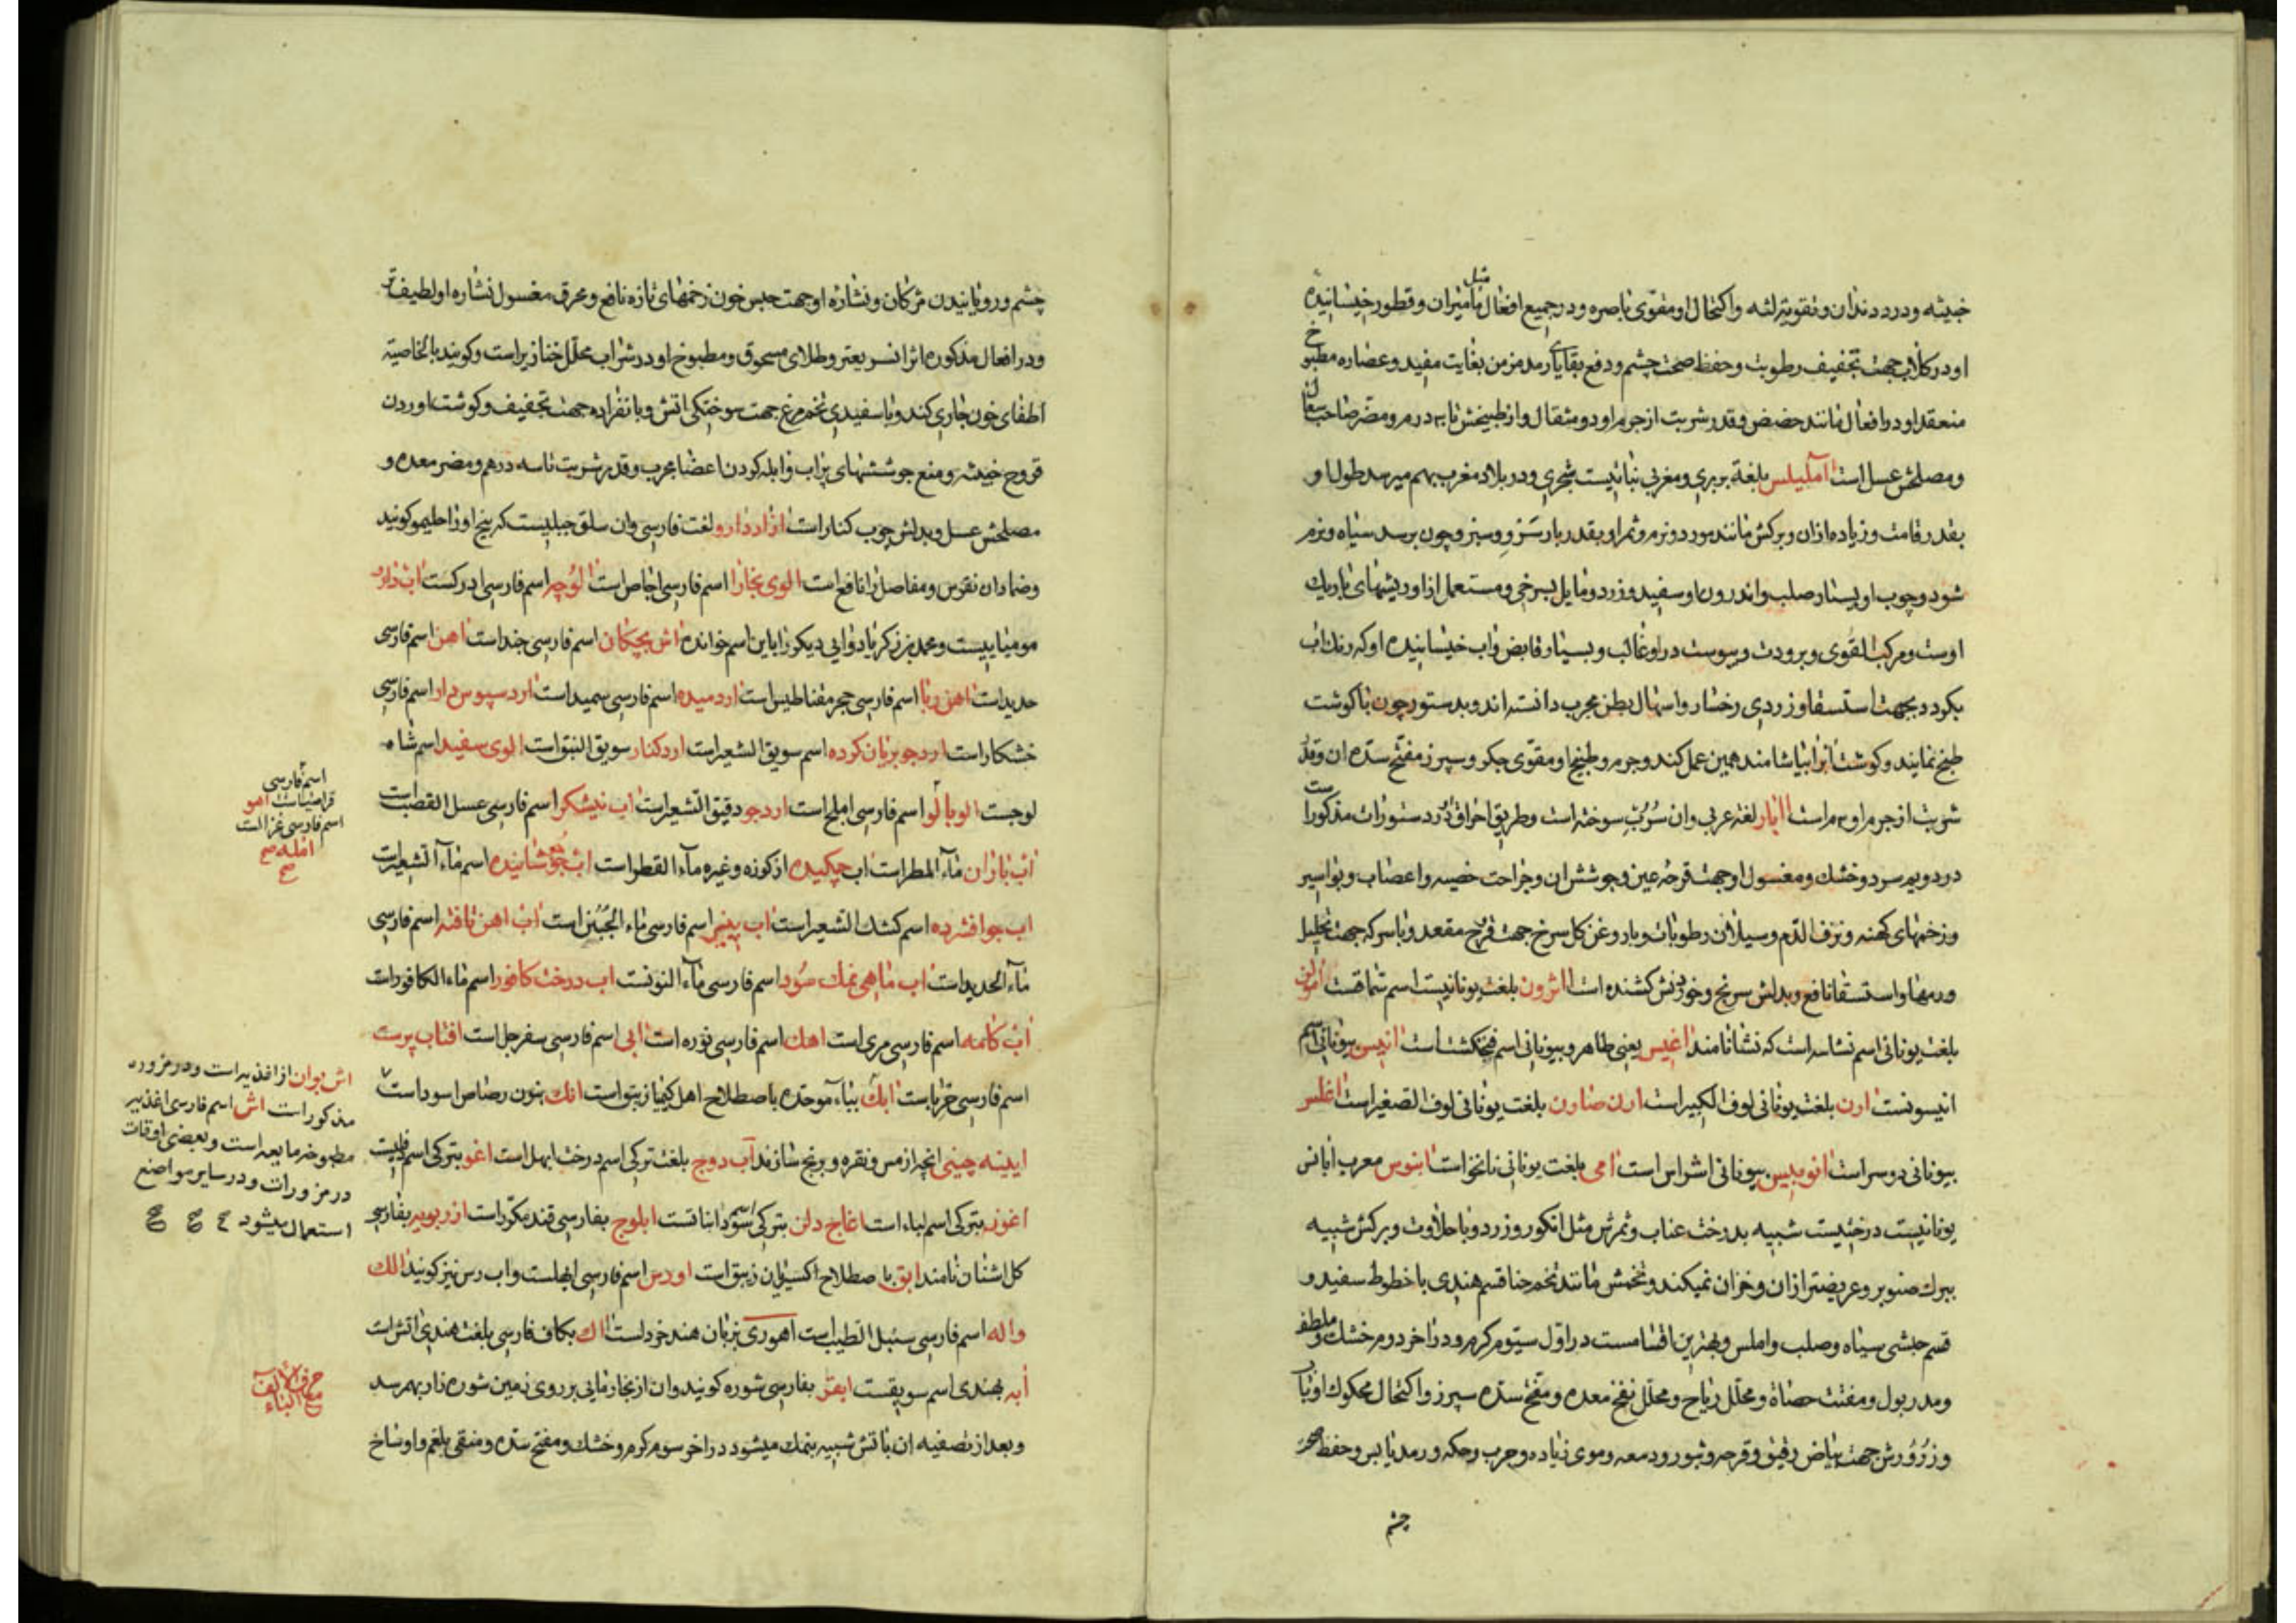 خبیثه و درد دندان و تقویة لثه و اکتحال او مقوی باصره و در جمیع افعال مثل مامیران و قطور خیسانیده
او در کلاب جهت تجفیف رطوبت و حفظ صحت چشم و دفع بقایای رمد مزمن بغایت مفید و عصاره مطبوخ
منعقد او در افعال مانند حضض و قدر شربت از جرم او دو مثقال و از طبیخش تا ده درم و مضر صاحب سعال
و مصلحش عسل است آملیلس بلغة بربری و مغربی نباتیست شجری و در بلاد مغرب بهم میرسد طول او
بقدر قامت و زیاده ازان و برکش مانند مورد و نرم و ثمر او بقدر بار سرو و سبز و چون برسد سیاه و نرم
شود و چوب او بسیار صلب و اندرون او سفید و زرد و مایل بسرخی و مستعمل ازاو ریشهای باریک
اوست و مرکب القوی و برودت و یبوست در او غالب و بسیار قابض و آب خیسانیده او که رنک اب
بکردد بجهت استسقا و زردی رخسار و اسهال بطن مجرب دانسته اند و بدستور چون با کوشت
طبخ نمایند و کوشت آنرا بیاشامند همین عمل کند و جرم و طبیخ او مقوی جکر و سپرز مفتح سده ان و قدر
شربت از جرم او درم است آابار لغة عربی و ان سُرُب سوخته است و طریق احراق در دستورات مذکور است
در دویم سرد و خشک و مغسول او جهت قرحه عین و جوشش ان و جراحت خصیه و اعصاب و بواسیر
و زخمهای کهنه و نزف الدم و سیلان رطوبات و با روغن کل سرخ جهت قرح مقعد و با سرکه جهت تحلیل
ورمها و استسقا نافع و بدلش سرنج و خوردنش کشنده است ااثرون بلغت یونانیست اسم سماقست امولن
بلغت یونانی اسم نشاسته است که نشا نامند اغنیس یعنی طاهر و بیونانی اسم فنجنکشت است انیس بیونانی اسم
انیسونست ارن بلغت یونانی لوف الکبیر است ارن صارون بلغت یونانی لوف الصغیر است اغلس
بیونانی دوسر است انوبیس بیونانی اشراس است امی بلغت یونانی نانخواست ابنوس معرب ابانس
یونانیست درختیست شبیه بدرخت عناب و ثمرش مثل انکور و زرد و با حلاوت و برکش شبیه
ببرک صنوبر و عریضتر ازان و خزان نمیکند و تخمش مانند تخم حنا قسم هندی با خطوط سفید و
قسم حبشی سیاه و صلب و املس و بهترین اقسامست در اول سیوم کرم و در اخر دوم خشک و ملطف
و مدر بول و مفتت حصاة و محلل ریاح و محلل نفخ معده و مفتح سده سپرز و اکتحال محکوک او با
و زرورش جهت بیاض رقیق و قرحه و بثور و دمعه و موی زیاده و جرب و حکه و رمد یابس و حفظ صحة
چشم
چشم و رویانیدن مژکان و نشاره او جهت حبس خون زخمهای تازه نافع و محرق مغسول نشاره او لطیف تر
و در افعال مذکوره اثر انسر یعتر و طلای مسحوق و مطبوخ او در شراب محلل خنازیر است و کویند بالخاصیة
اطفای خون جاری کند و با سفیدی تخم مرغ جهت سوختکی اتش و بانفراده جهت تجفیف و کوشت اوردن
قروح خبیثه و منع جوششهای پر اب و ابله کردن اعضا مجرب و قدر شربت تا سه درهم و مضر معده و
مصلحش عسل و بدلش چوب کنار است ازاد دارو لغت فارسی و ان سلق جبلیست که بیخ او را حلیمو کویند
و ضماد ان نقرس و مفاصل را نافع است الوی بخارا اسم فارسی اجاص است الوچه اسم فارسی ادرکست اب دارو
مومیاییست و محمد بن زکریا دوایی دیکر را باین اسم خوانده اش بچکان اسم فارسی جند است اهن اسم فارسی
حدید است اهن ربا اسم فارسی حجر مقناطیس است ارد میده اسم فارسی سمید است ارد سبوس دار اسم فارسی
خشکار است ارد جو بریان کرده اسم سویق الشعیر است ارد کنار سویق النبق است الوی سفید اسم شاه
لوجست الوبالو اسم فارسی املج است ارد جو دقیق الشعیر است اب نیشکر اسم فارسی عسل القصب است
اب باران ماء المطر است اب چکیده از کوزه و غیره ماء القطر است اب جو جوشانیده اسم ماء الشعیر است
اب جو افشرده اسم کشک الشعیر است اب پنیر اسم فارسی ماء الجبن است اب اهن تافته اسم فارسی
ماء الحدید است اب ماهی نمک سود اسم فارسی ماء النونست اب درخت کافور اسم ماء الکافور است
اب کامه اسم فارسی مری است اهک اسم فارسی نوره است ابی اسم فارسی سفرجل است افتاب پرست
اسم فارسی حرباست ابک بباء موحده باصطلاح اهل کیمیا زیبق است انک بنون رصاص اسود است
ایینه چینی انچه از مس و نقره و برنج سازند آب دوج بلغت ترکی اسم درخت ابهل است اغو بترکی اسم
اغوز بترکی اسم لباء است اغاج دلن بترکی اسم سودانیاتست ابلوج بفارسی قند مکرر است ازربویه بفارسی
کل اشنان نامند ابق باصطلاح اکسیریان زیبق است اورس اسم فارسی ابهلست و اب رس نیز کویند الک
و اله اسم فارسی سنبل الطیب است اهوری بزبان هند خردلست اک بکاف فارسی بلغت هندی اتش است
ابه بهندی اسم سویقست ابقر بفارسی شوره کویند وان از بخار مایی بر روی زمین شوره زار بهم رسد
و بعد از تصفیه ان باتش شبیه بنمک میشود در اخر سوم کرم و خشک و مفتح سده و منقی بلغم و اوساخ
اسم فارسی
قراصیاست اهو
اسم فارسی غزالست
امله صح
صح
اش بوان از اغذیه است و در مزوره
مذکور است اش اسم فارسی اغذیه
مطبوخه مایعه است و بعضی اوقات
در مزورات و در سایر مواضع
استعمال میشود
حرف الالف
مع الباء